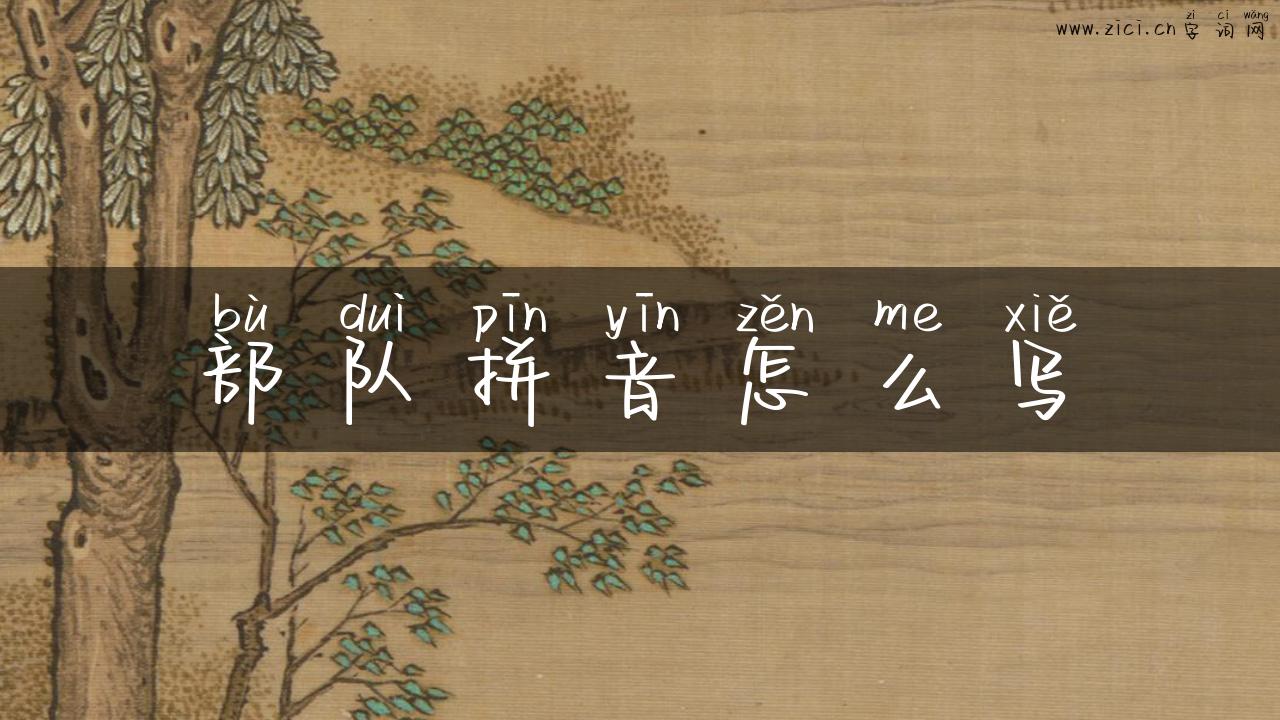 zì cí wǎng
www.zici.cn 字词网
bù duì pīn yīn zěn me xiě
部队拼音怎么写